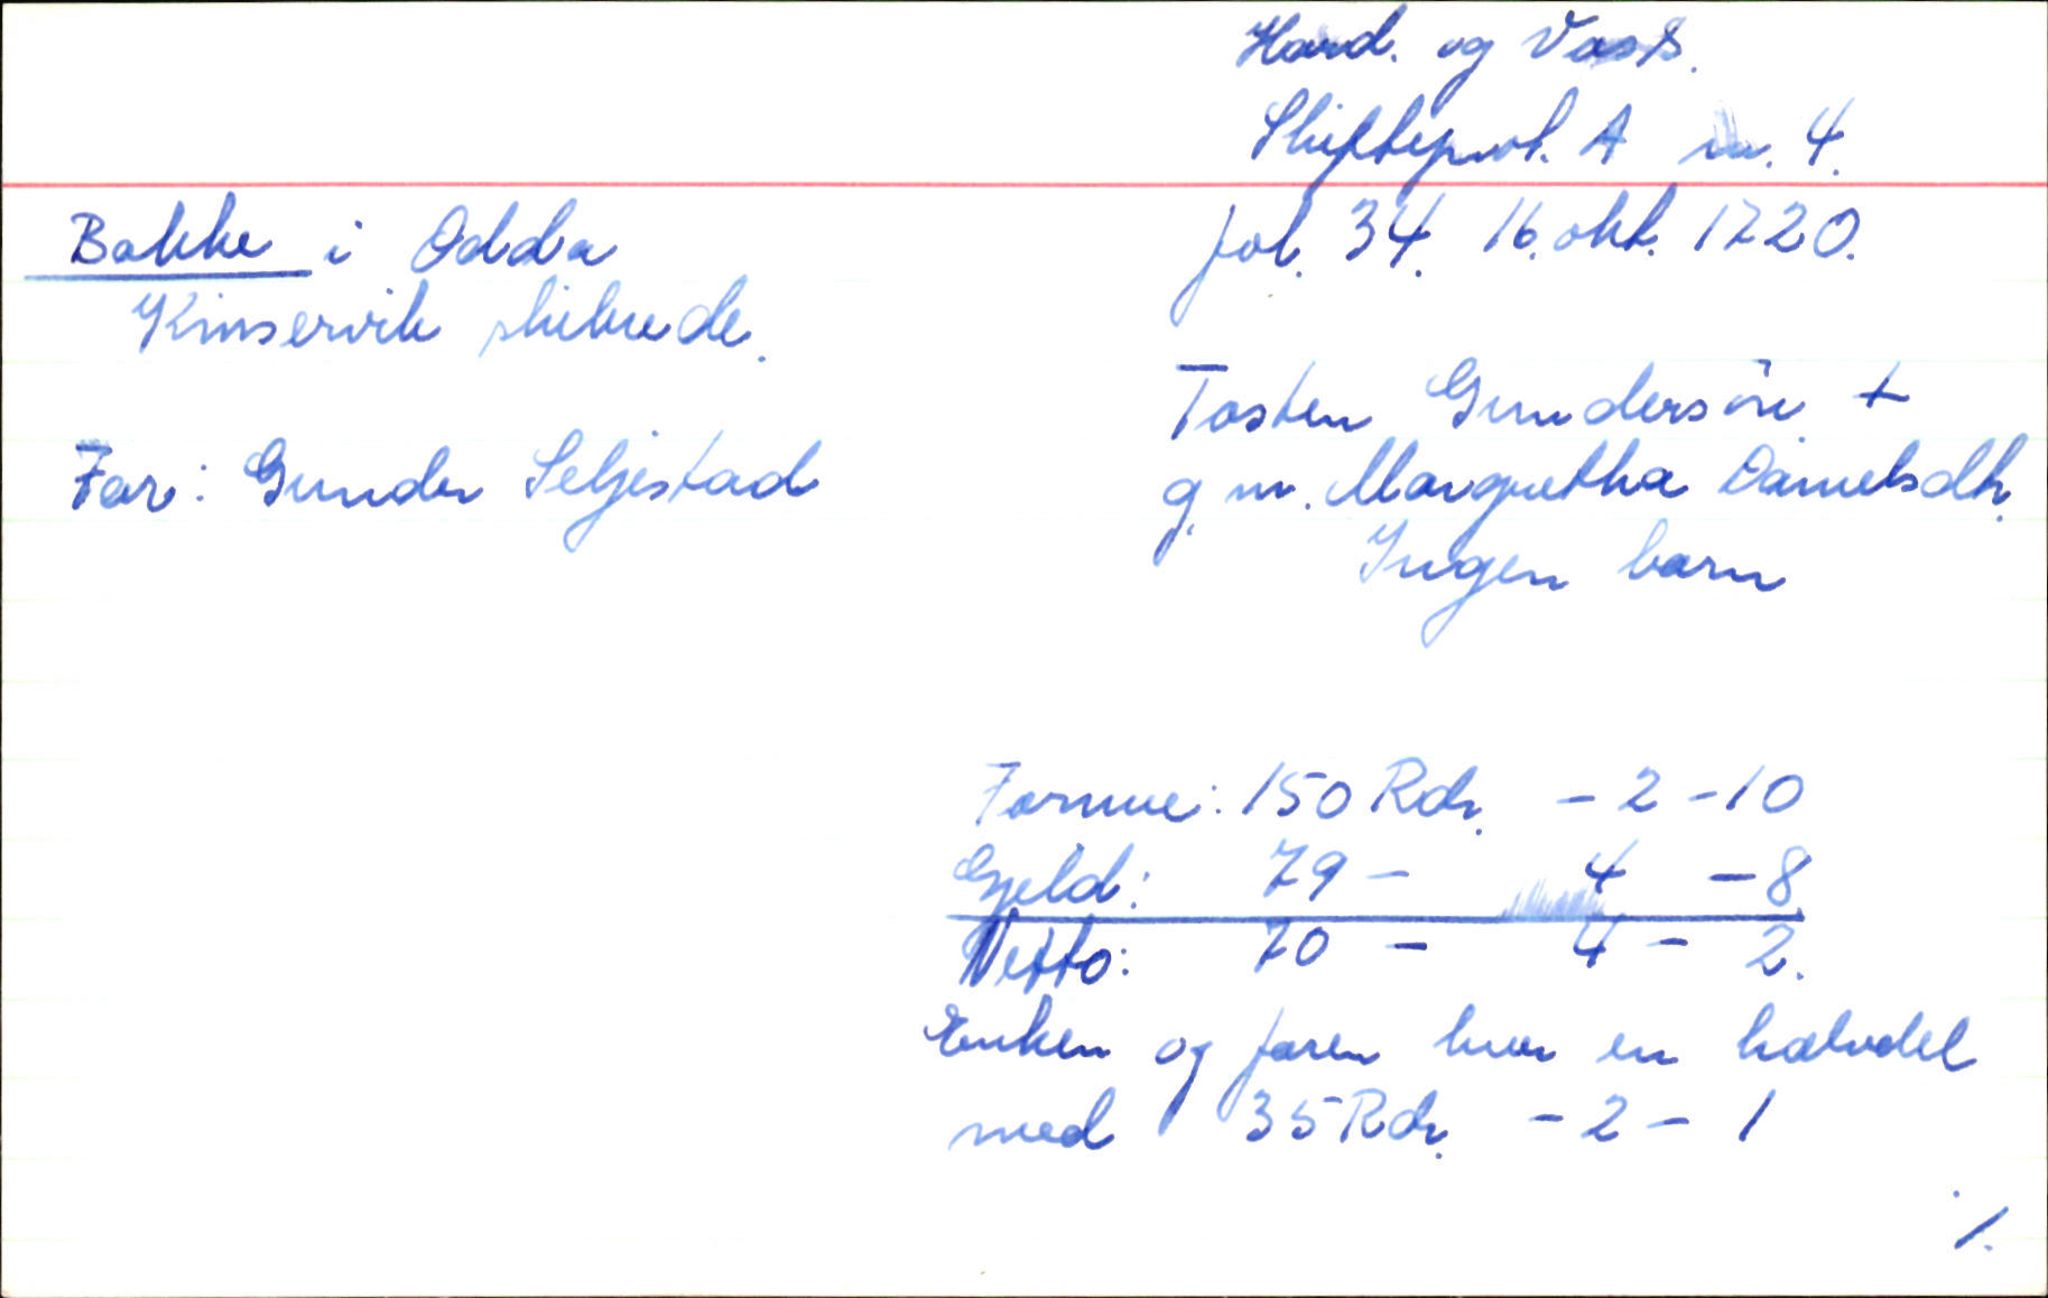 Hard. og Voss.
Skifteprot. A nr. 4.
fol. 34. 16. okt. 1720.
Bakke i Odda
Kinservik skibrede.
Tosten Gundersön +
g. m. Margretha Danielsdtr.
Ingen barn
Far: Gunder Seljestad
Formue: 150 Rdr. - 2 - 10
Gjeld: 79 - 4 - 8
Netto: 70 - 4 - 2.
Enken og faren hver en halvdel
med 35 Rdr. - 2 - 1